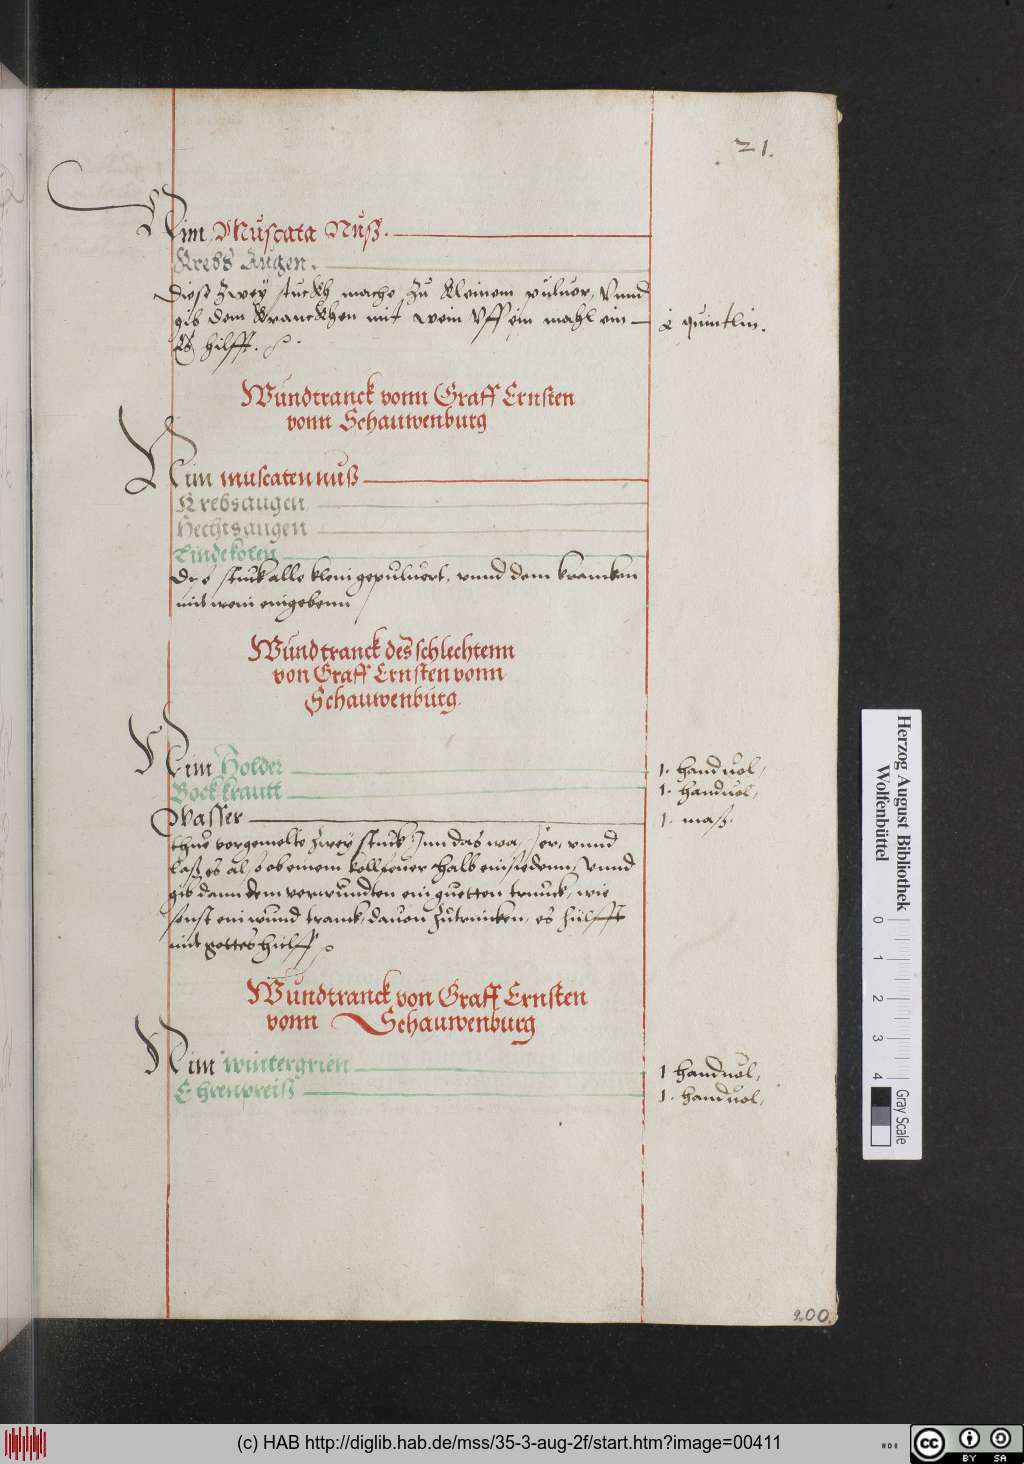 21.
Nim Muscata Nuß.
Krebs Augen.
Diese zwey stuckh mache zu kleinem puluer, Vnnd
gib dem Kranckhen mit wein Vff ein mahl ein — quintlin.
Es hilfft.
Wundtranck vonn Graff Ernsten
vonn Schauwenburg
Nim muscaten nuß
Krebsaugen
Hechtsaugen
Lindekolen
stuck alle klein gepuluert, vnnd dem krancken
mit wein eingebenn
Wundtranck des schlechtenn
von Graff Ernsten vonn
Schauwenburg.
Nim Holder 1. handuol,
Bockkrautt 1. handuol,
Wasser 1. maß.
thue vorgemelte zwey stuck Inn das wasser, vnnd
laß es also ob einem kollfeuer halb einsiedenn, Vnnd
gib dann dem verwundten ein guetten trunck, wie
sonst ein wund tranck, dauon zutrincken, es hülfft
mit gottes hülff
Wundtranck von Graff Ernsten
vonn Schauwenburg
Nim wintergrien 1 handuol,
Ehrenpreiß 1. handuol,
200.
Herzog August Bibliothek
Wolfenbüttel
0 1 2 3 4
Gray Scale
(c) HAB http://diglib.hab.de/mss/35-3-aug-2f/start.htm?image=00411
cc BY SA